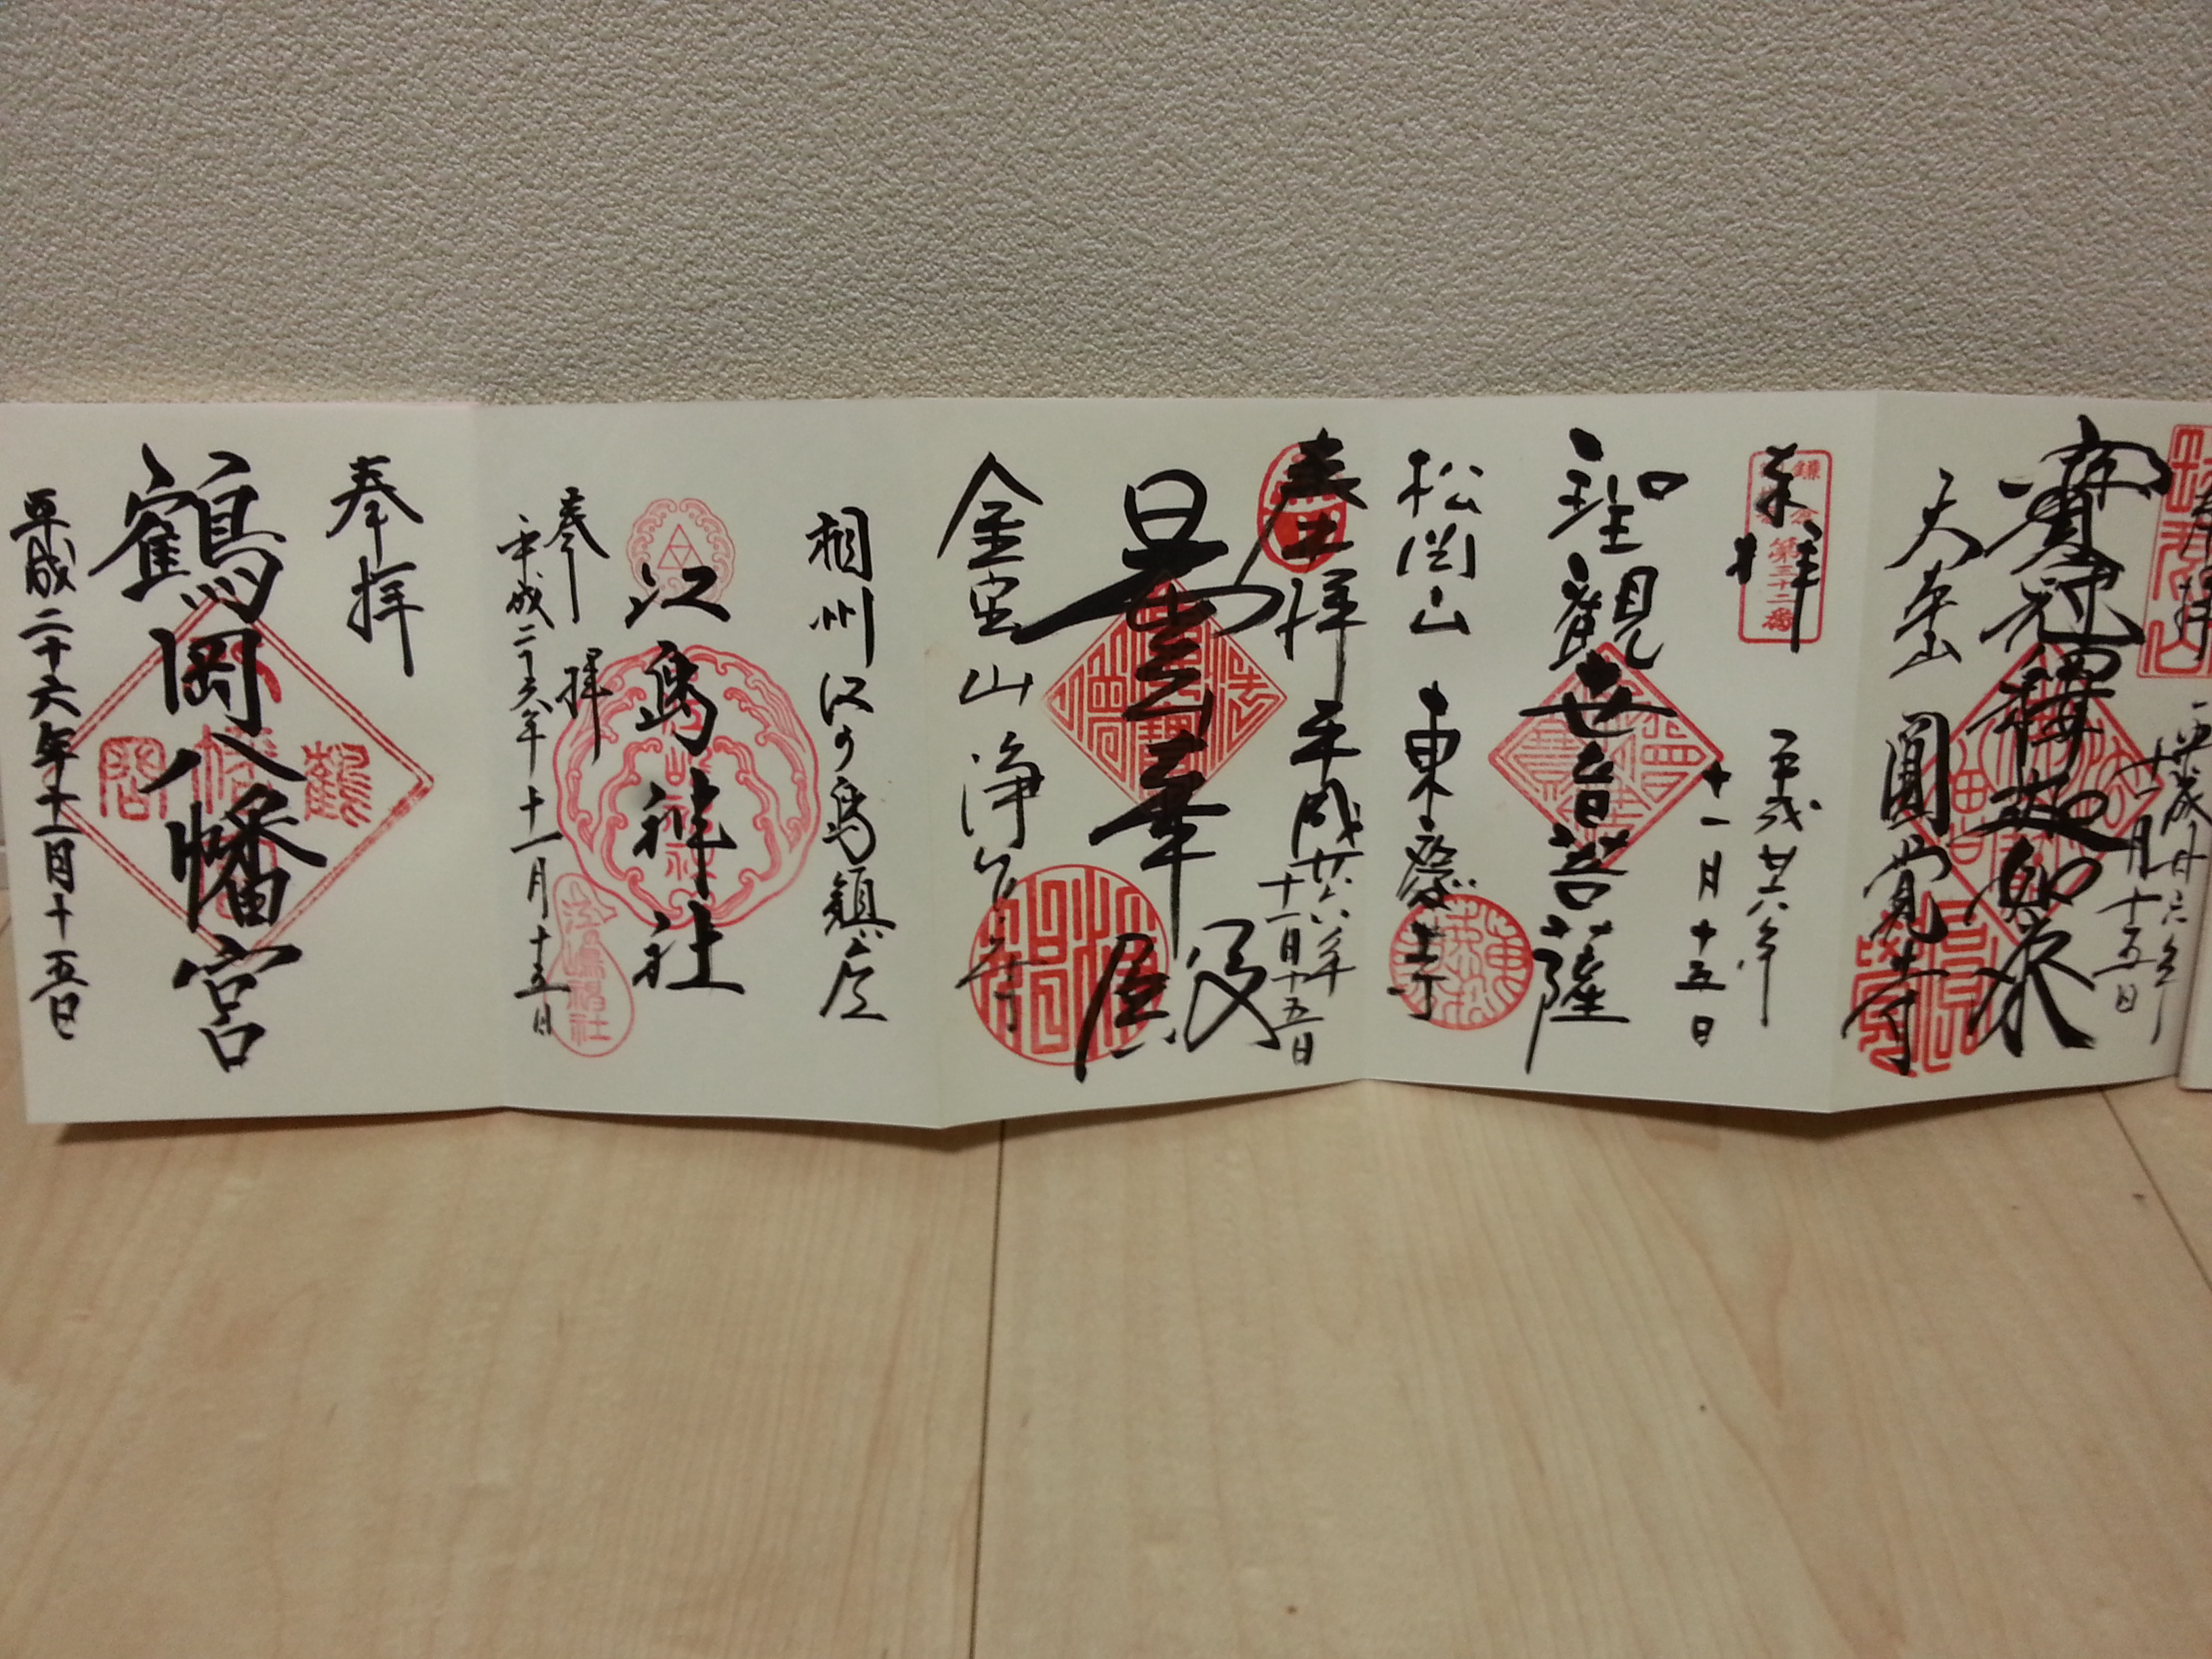 奉拝
平成廿六年
十一月十五日
寶冠釋迦如来
圓覚寺
奉拝
鎌倉
第三十二番
平成廿六年
十一月十五日
聖観世音菩薩
松岡山 東慶寺
奉拝 平成廿六年
十一月十五日
曇華殿
金宝山 浄智寺
相州江の島鎮座
江島神社
奉拝
平成二十六年十一月十五日
奉拝
鶴岡八幡宮
平成二十六年十一月十五日